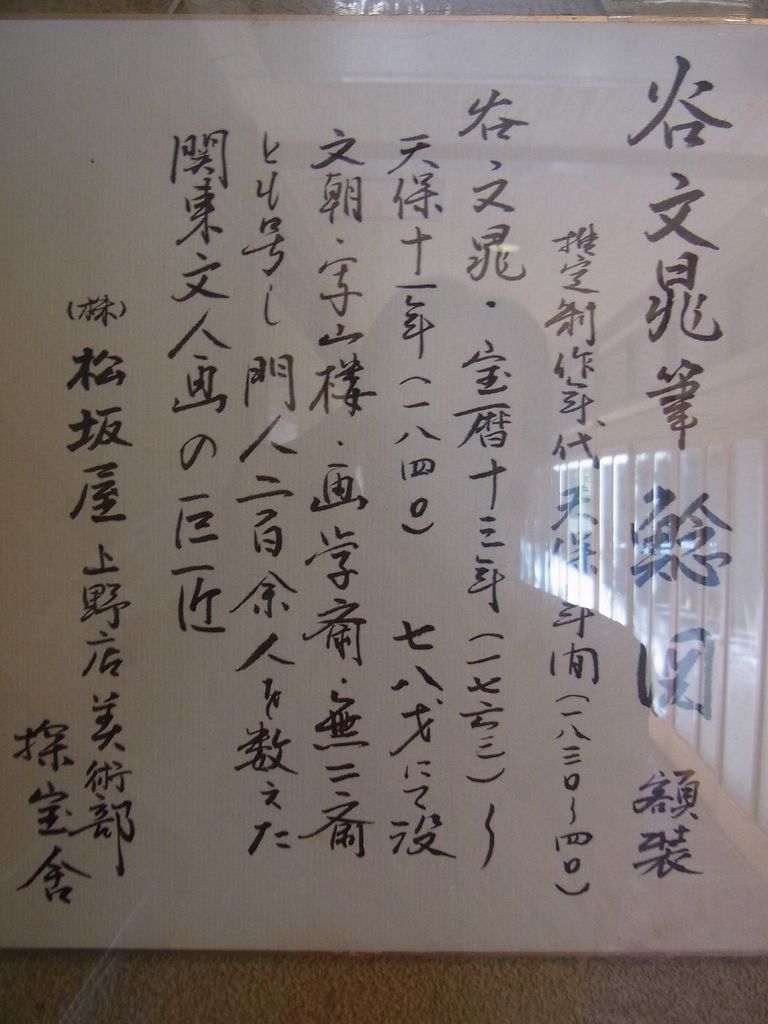 谷文晁筆 鯰図 額装
推定制作年代 天保年間(一八三〇〜四〇)
谷文晁・宝暦十三年(一七六三)〜
天保十一年(一八四〇) 七八才にて没
文朝・写山楼・画学斎・無二斎
とも号し門人二百余人を数えた
関東文人画の巨匠
(株)松坂屋上野店美術部
探宝舎